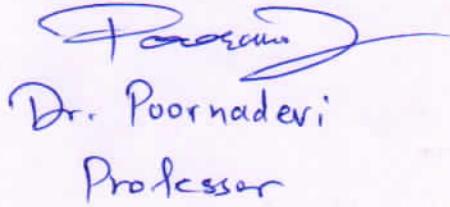 Dr. Poornadevi
Professor